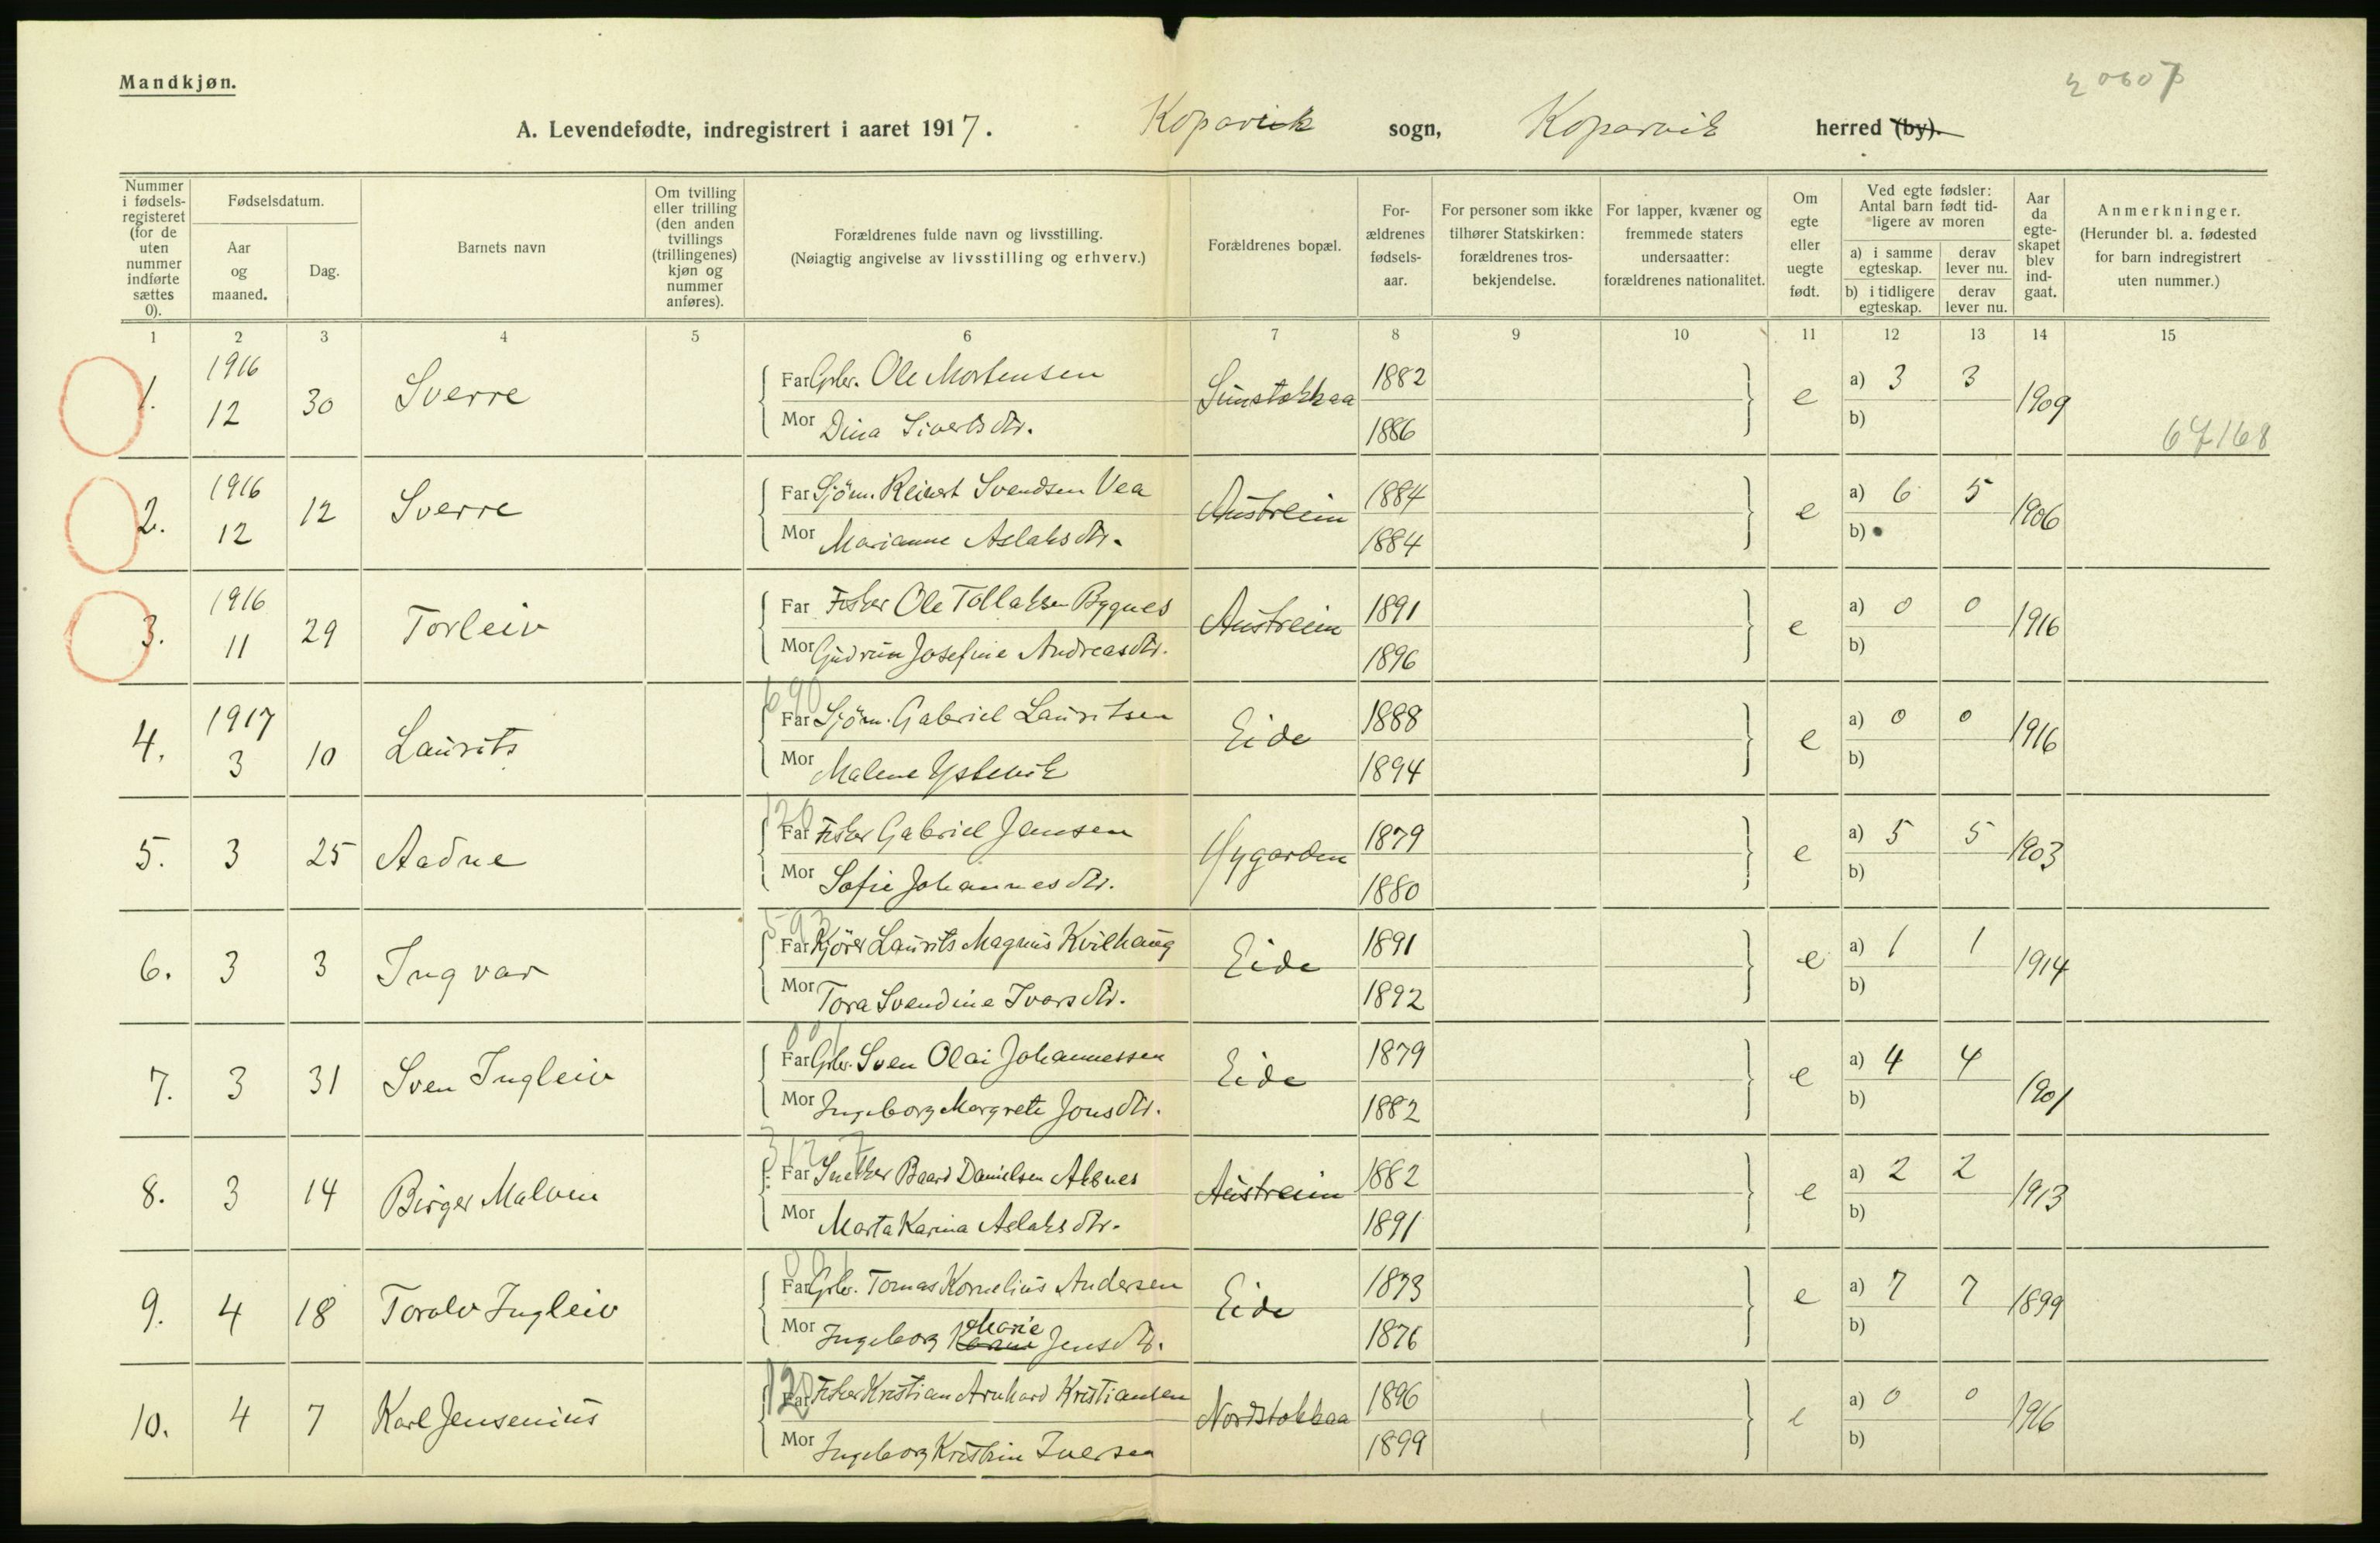 Mandkjøn.
20607
A. Levendefødte, indregistrert i aaret 1917. Kopervik sogn, Kopervik herred (by).
Nummer i fødselsregisteret (for de uten nummer indførte sættes 0).
Fødselsdatum.
Aar og maaned.
Dag.
Barnets navn
Om tvilling eller trilling (den anden tvillings (trillingenes) kjøn og nummer anføres).
Forældrenes fulde navn og livsstilling.
(Nøiagtig angivelse av livsstilling og erhverv.)
Forældrenes bopæl.
Forældrenes fødselsaar.
For personer som ikke tilhører Statskirken: forældrenes trosbekjendelse.
For lapper, kvæner og fremmede staters undersaatter: forældrenes nationalitet.
Om egte eller uegte født.
Ved egte fødsler: Antal barn født tidligere av moren
a) i samme egteskap. derav lever nu.
b) i tidligere egteskap. derav lever nu.
Aar da egteskapet blev indgaat.
Anmerkninger.
(Herunder bl. a. fødested for barn indregistrert uten nummer.)
1 2 3 4 5 6 7 8 9 10 11 12 13 14 15
1. 1916 12 30 Sverre Far Gbr. Ole Mortensen Sunstokkaa 1882 e a) 3 3 1909
Mor Dina Sivertsdtr. 1886 b)
67168
2. 1916 12 12 Sverre Far Sjöm. Reinert Svendsen Vea Austreim 1884 e a) 6 5 1906
Mor Marianne Aslaksdtr. 1884 b)
3. 1916 11 29 Torleiv Far Fisker Ole Tollaksen Bygnes Austreim 1891 e a) 0 0 1916
Mor Gudrun Josefine Andreasdtr. 1896 b)
690
4. 1917 3 10 Laurits Far Sjöm. Gabriel Lauritsen Eide 1888 e a) 0 0 1916
Mor Malene 1894 b)
120
5. 3 25 Aadne Far Fisker Gabriel Jensen Nygarden 1879 e a) 5 5 1903
Mor Sofie Johannesdtr. 1880 b)
593
6. 3 3 Ingvar Far Kjörer Laurits Magnus Kvilhaug Eide 1891 e a) 1 1 1914
Mor Tora Svendine Ivarsdtr. 1892 b)
001
7. 3 31 Sven Ingleiv Far Gbr. Sven Olai Johannessen Eide 1879 e a) 4 4 1901
Mor Ingeborg Margrete Jonsdtr. 1882 b)
312 7
8. 3 14 Birger Malvin Far Snekker Baard Danielsen Aksnes Austreim 1882 e a) 2 2 1913
Mor Marta Karina Aslaksdtr. 1891 b)
001
9. 4 18 Toralv Ingleiv Far Gbr. Tomas Kornelius Andersen Eide 1873 e a) 7 7 1899
Mor Ingeborg Marie Jensdtr. 1876 b)
120
10. 4 7 Karl Jensenius Far Fisker Kristian Arnhard Kristiansen Nordstokkaa 1896 e a) 0 0 1916
Mor Ingeborg Kristine Iversen 1899 b)